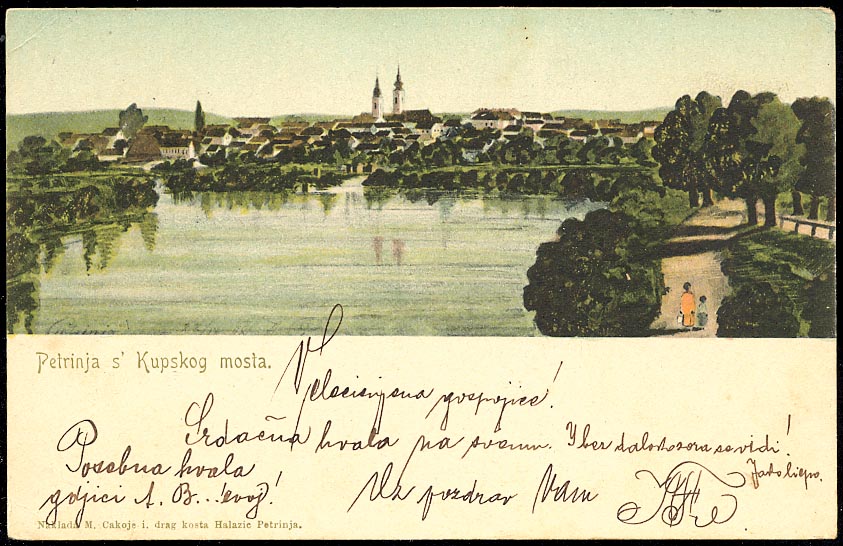 Petrinja s' Kupskog mosta.
Velecijenjena gospojice!
Srdačna hvala na svemu.
Jako liepo.
Posebna hvala
gdjici A. B...!evoj!
Uz pozdrav Vam
Naklada M. Cakoje i. drag kosta Halazic Petrinja.